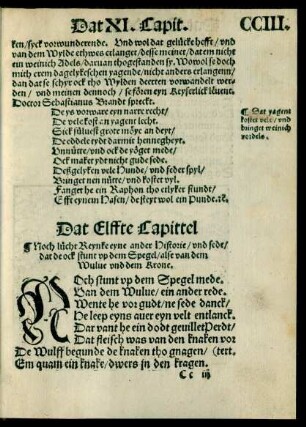 Dat XI. Capit.
CCIII.
ken/ syck vorwunderende. Vnd wol dat gelücke hefft/ vnd
van dem Wylde ethwes erlanget/ desse meinet/ dat em nicht
ein weinich Adels/ daruan thogestanden sy. Wowol se doch
mith erem dagelykeschen yagende/ nicht anders erlangenn/
dan dat se schyr ock tho Wylden Deerten vorwandelt wer-
den/ vnd meinen dennoch/ se fören eyn Keyserlick leuent.
Doctor Sebastianus Brandt spreckt.
De ys vorware eyn narre recht/
De vele kost an yagent lecht.
Sick süluest grote möye an deyt/
De eddele tydt darmit hennegheyt.
Vnnütte/ vnd ock de vöge mede/
Ock maket ydt nicht gude sede.
Deßgelyken vele Hunde/ vnd seder spyl/
Bringet nen nütte/ vnd kostet vyl.
Fanget he ein Raphon tho etlyker stundt/
Effte eynen Hasen/ de steyt wol ein Pundt.
¶ Dat yagent
kostet vele/ vnd
bringet weinich
vordels.
Dat Elffte Capittel
¶ Noch lücht Reynke eyne ander Historie/ vnd sede/
dat de ock stunt vp dem Spegel/ alse van dem
Wulue vnd dem Krone.
NOch stunt vp dem Spegel mede.
Van dem Wulue/ ein ander rede.
Wente he vor gudt/ ne sede danck/
He leep eyns auer eyn velt entlanck.
Dar vant he ein dodt geuillet Perdt/
Dat fleisch was van den knaken vor
De Wulff begunde de knaken tho gnagen/ (tert.
Em quam ein knake/ dwers in den kragen.
Cc iij